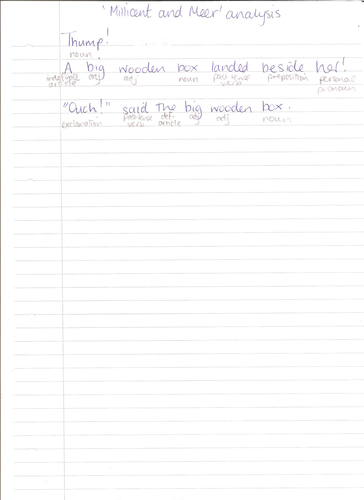 'Millicent and Meer' analysis
Thump!
noun
A big wooden box landed beside her!
indefinite adj adj noun past tense preposition personal
article verb pronoun
"Ouch!" said the big wooden box.
exclamation past tense def. adj adj noun
verb article